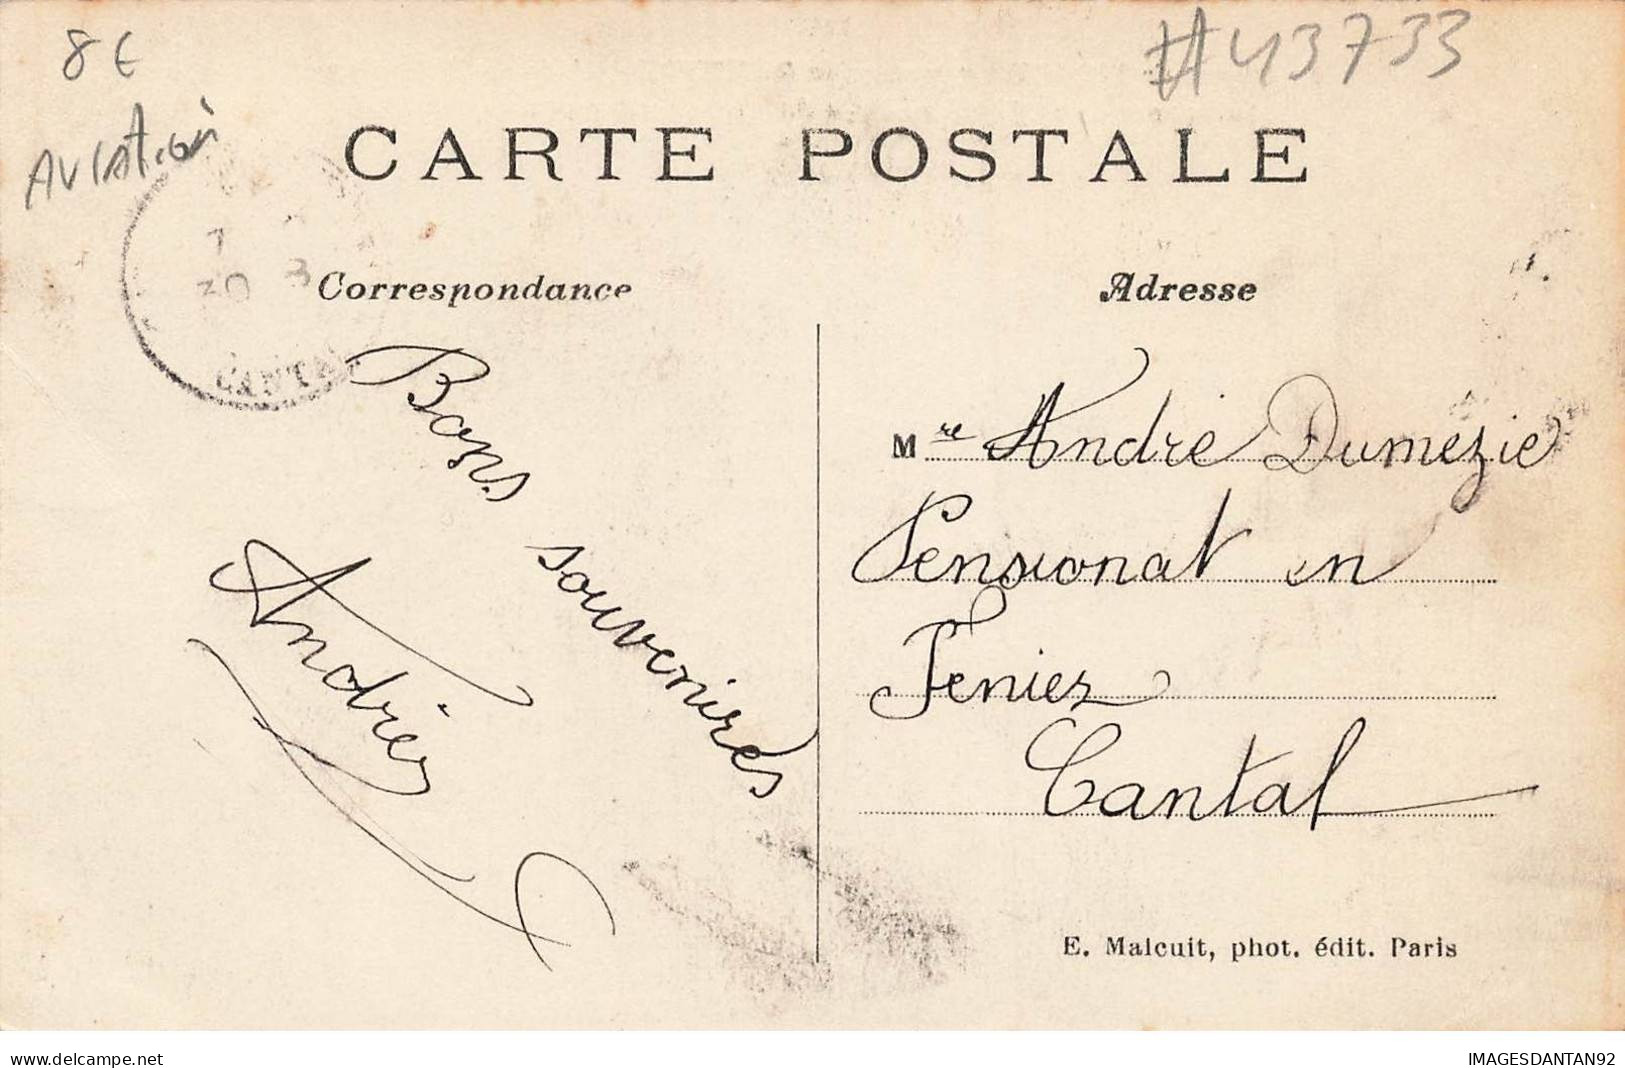 8€
#43733
AVIATion
CARTE POSTALE
7
30 3
CANTAL
Correspondance
Adresse
Bons souvenires
Andrée
Mre André Dumézie
Pensionat in
Feniez
Cantal
E. Malcuit, phot. édit. Paris
www.delcampe.net
IMAGESDANTAN92